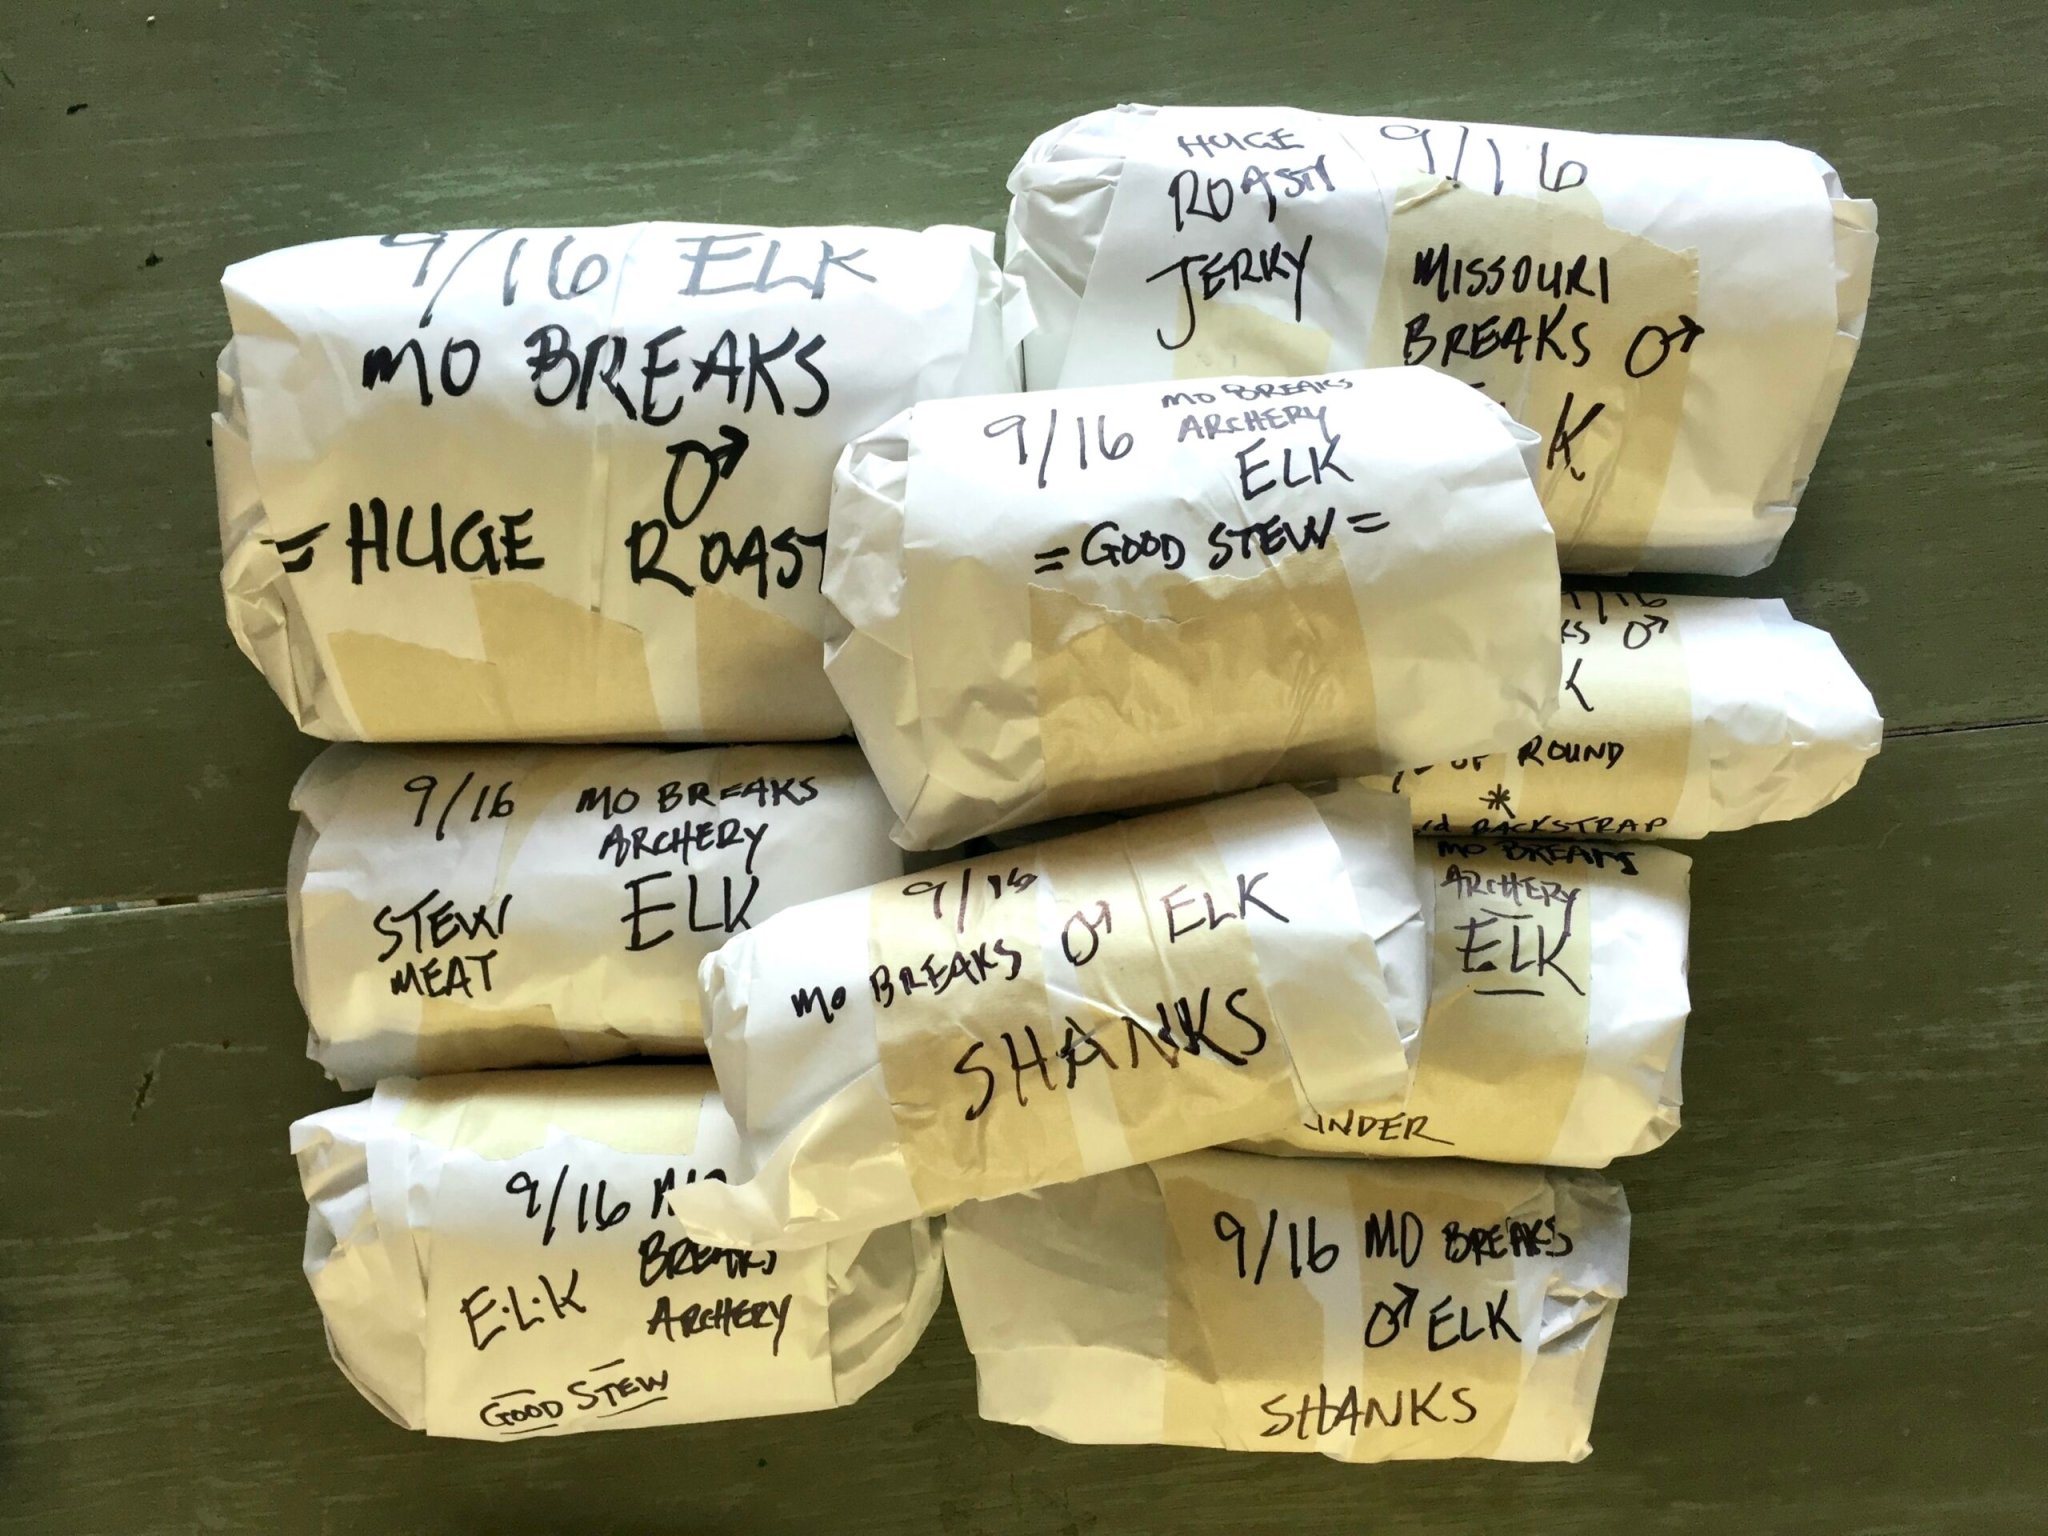 9/16 ELK
MO BREAKS
♂
= HUGE ROAST
HUGE
ROAST/
JERKY
9/16
MISSOURI
BREAKS ♂
K
9/16
MO BREAKS
ARCHERY
ELK
= GOOD STEW =
♂
OF ROUND
*
BACKSTRAP
9/16
MO BREAKS
ARCHERY
ELK
STEW
MEAT
9/16
MO BREAKS ♂ ELK
SHANKS
MO BREAKS
ARCHERY
ELK
9/16
BREAKS
ARCHERY
E.L.K
GOOD STEW
9/16 MO BREAKS
♂ ELK
SHANKS